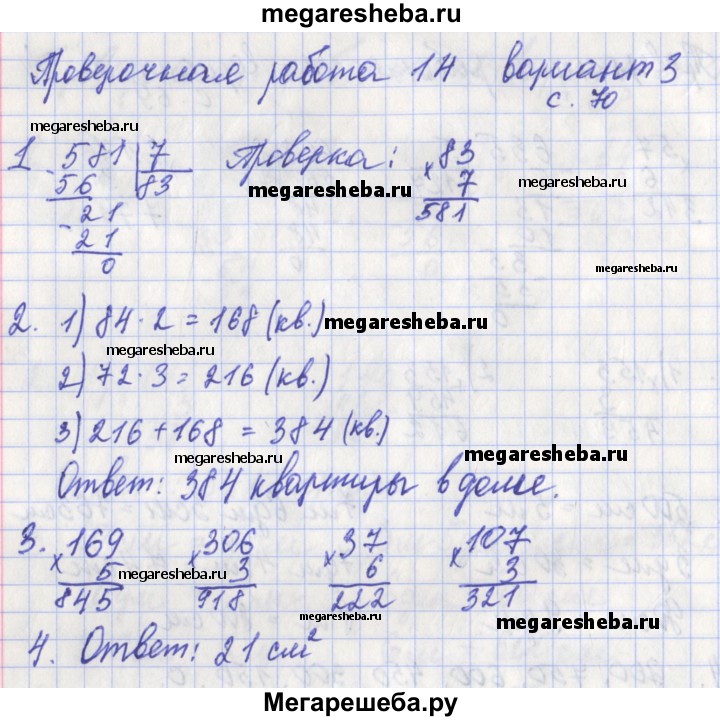 megaresheba.ru
Проверочная работа 14 вариант 3
с. 70
megaresheba.ru
1 581 | 7 Проверка: × 83
- 56 83 7
megaresheba.ru
megaresheba.ru
21 581
- 21
0
megaresheba.ru
2. 1) 84 · 2 = 168 (кв.) megaresheba.ru
megaresheba.ru
2) 72 · 3 = 216 (кв.)
3) 216 + 168 = 384 (кв.)
megaresheba.ru
megaresheba.ru
Ответ: 384 квартиры в доме.
3. × 169 × 306 × 37 × 107
5 3 6 3
megaresheba.ru
845 918 222 321
megaresheba.ru
megaresheba.ru
4. Ответ: 21 см²
Мегарешеба.ру